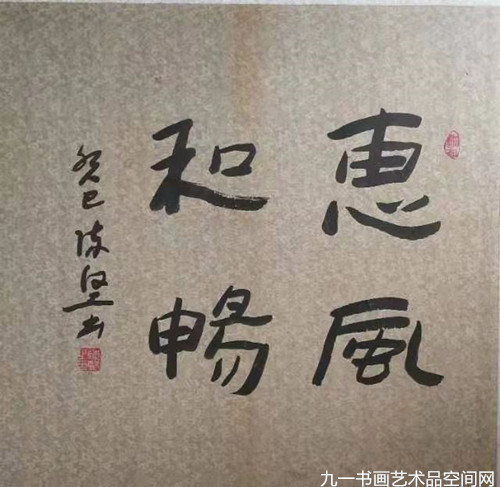 惠風
和暢
癸巳陈坚书
九一书画艺术品空间网